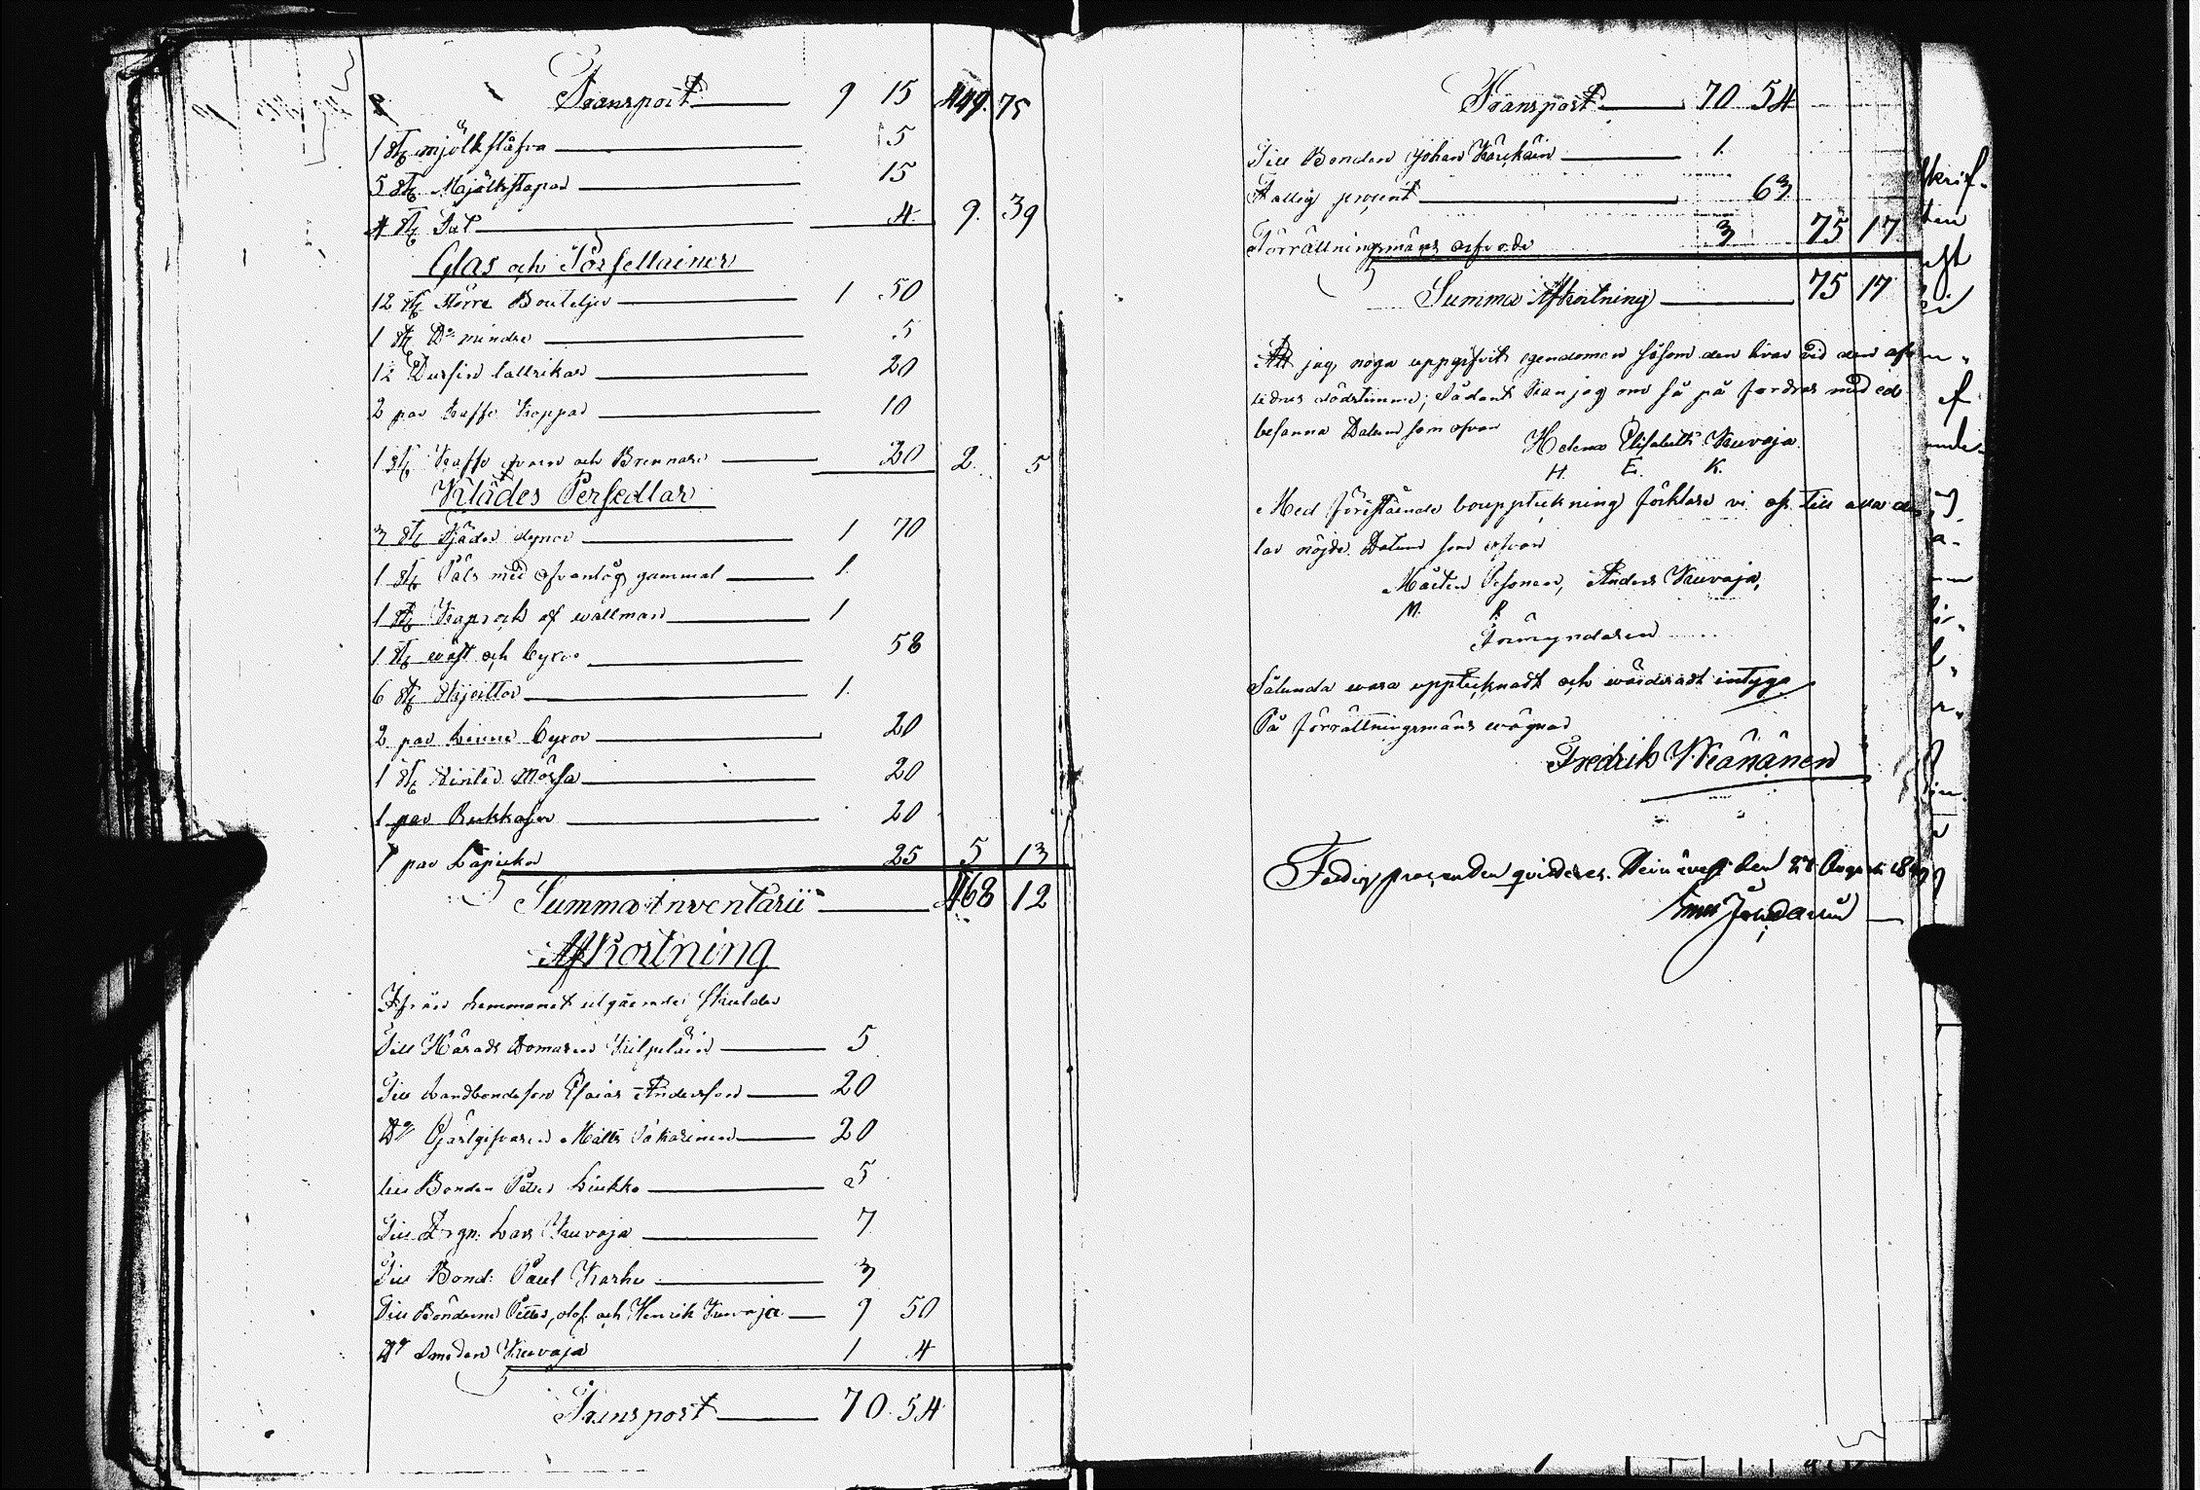 Transport 9 15 449. 75
1 st mjölk stäfva 5
5 st Mjölkstapor 15
4 st Fat 4. 9. 39
Glas och Porsellainer
12 st större Bouteljer 1 50
1 st D:o mindre 5
12 Dussin tallrikar 20
2 par kaffe Koppar 10
1 st Kaffe qvarn och Brennare 20 2. 5
Klädes Persedlar
3 st Fjäder dynor 1 70
1 st Päls med ofvantög gammal 1.
1 st Kaprock af wallmar 1
1 st wäst och byxor 58
6 st Skjortor 1.
2 par Linne byxor 20
1 st Vinter Mössa 20
1 par Rukkaser 20
1 par Lapickor 25 5 13
Summa Inventarii 468 12
Afkortning
Ifrån hemmanet utgående skulder
Till Härads Domaren Kilpeläin 5
Till Landbondeson Esaias Andersson 20
D:o Gjästgifvaren Matts 20
till Bonden Petter Liukko 5
Till Drgn: Lars Kuvaja 7
Till Bond: Paul Karhu 3
Till Bönderne Petter, Olof och Henrik Kuvaja 9 50
D:o Smeden Kuvaja 1 4
Transport 70. 54
Transport 70 54
Till Bonden Johan Kärkäin 1.
Fattig procent 63
Förrättningsmäns arfvode 3 75 17
Summa Afkortning 75 17
Att jag noga uppgifvit egendomen såsom den hvar vid den af
lednes dödstimma; Sådant kan jag om så på fordras med ed
besanna Datum som ofvan
Helena Elisabeth Kuvaja
H. E. K.
Med föristående bouppteckning förklare vi oss till alla de
lar nöjde. Datum som ofvan
Mårten Pesonen, Anders Kuvaja,
M. P.
Förmyndaren
Sålunda wara upptecknadt och wärderadt intyga
På förrättningsmäns wägnar
Fredrik Wäänänen
Fattig procenten qvitteres. den 27 August 18